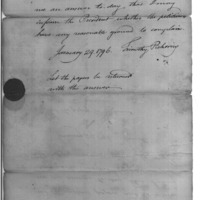 me an answer to day, that I may
inform the President whether the petitioner
have any reasonable ground to complain.
January 29. 1796. Timothy Pickering
Let the papers be returned
with the answer